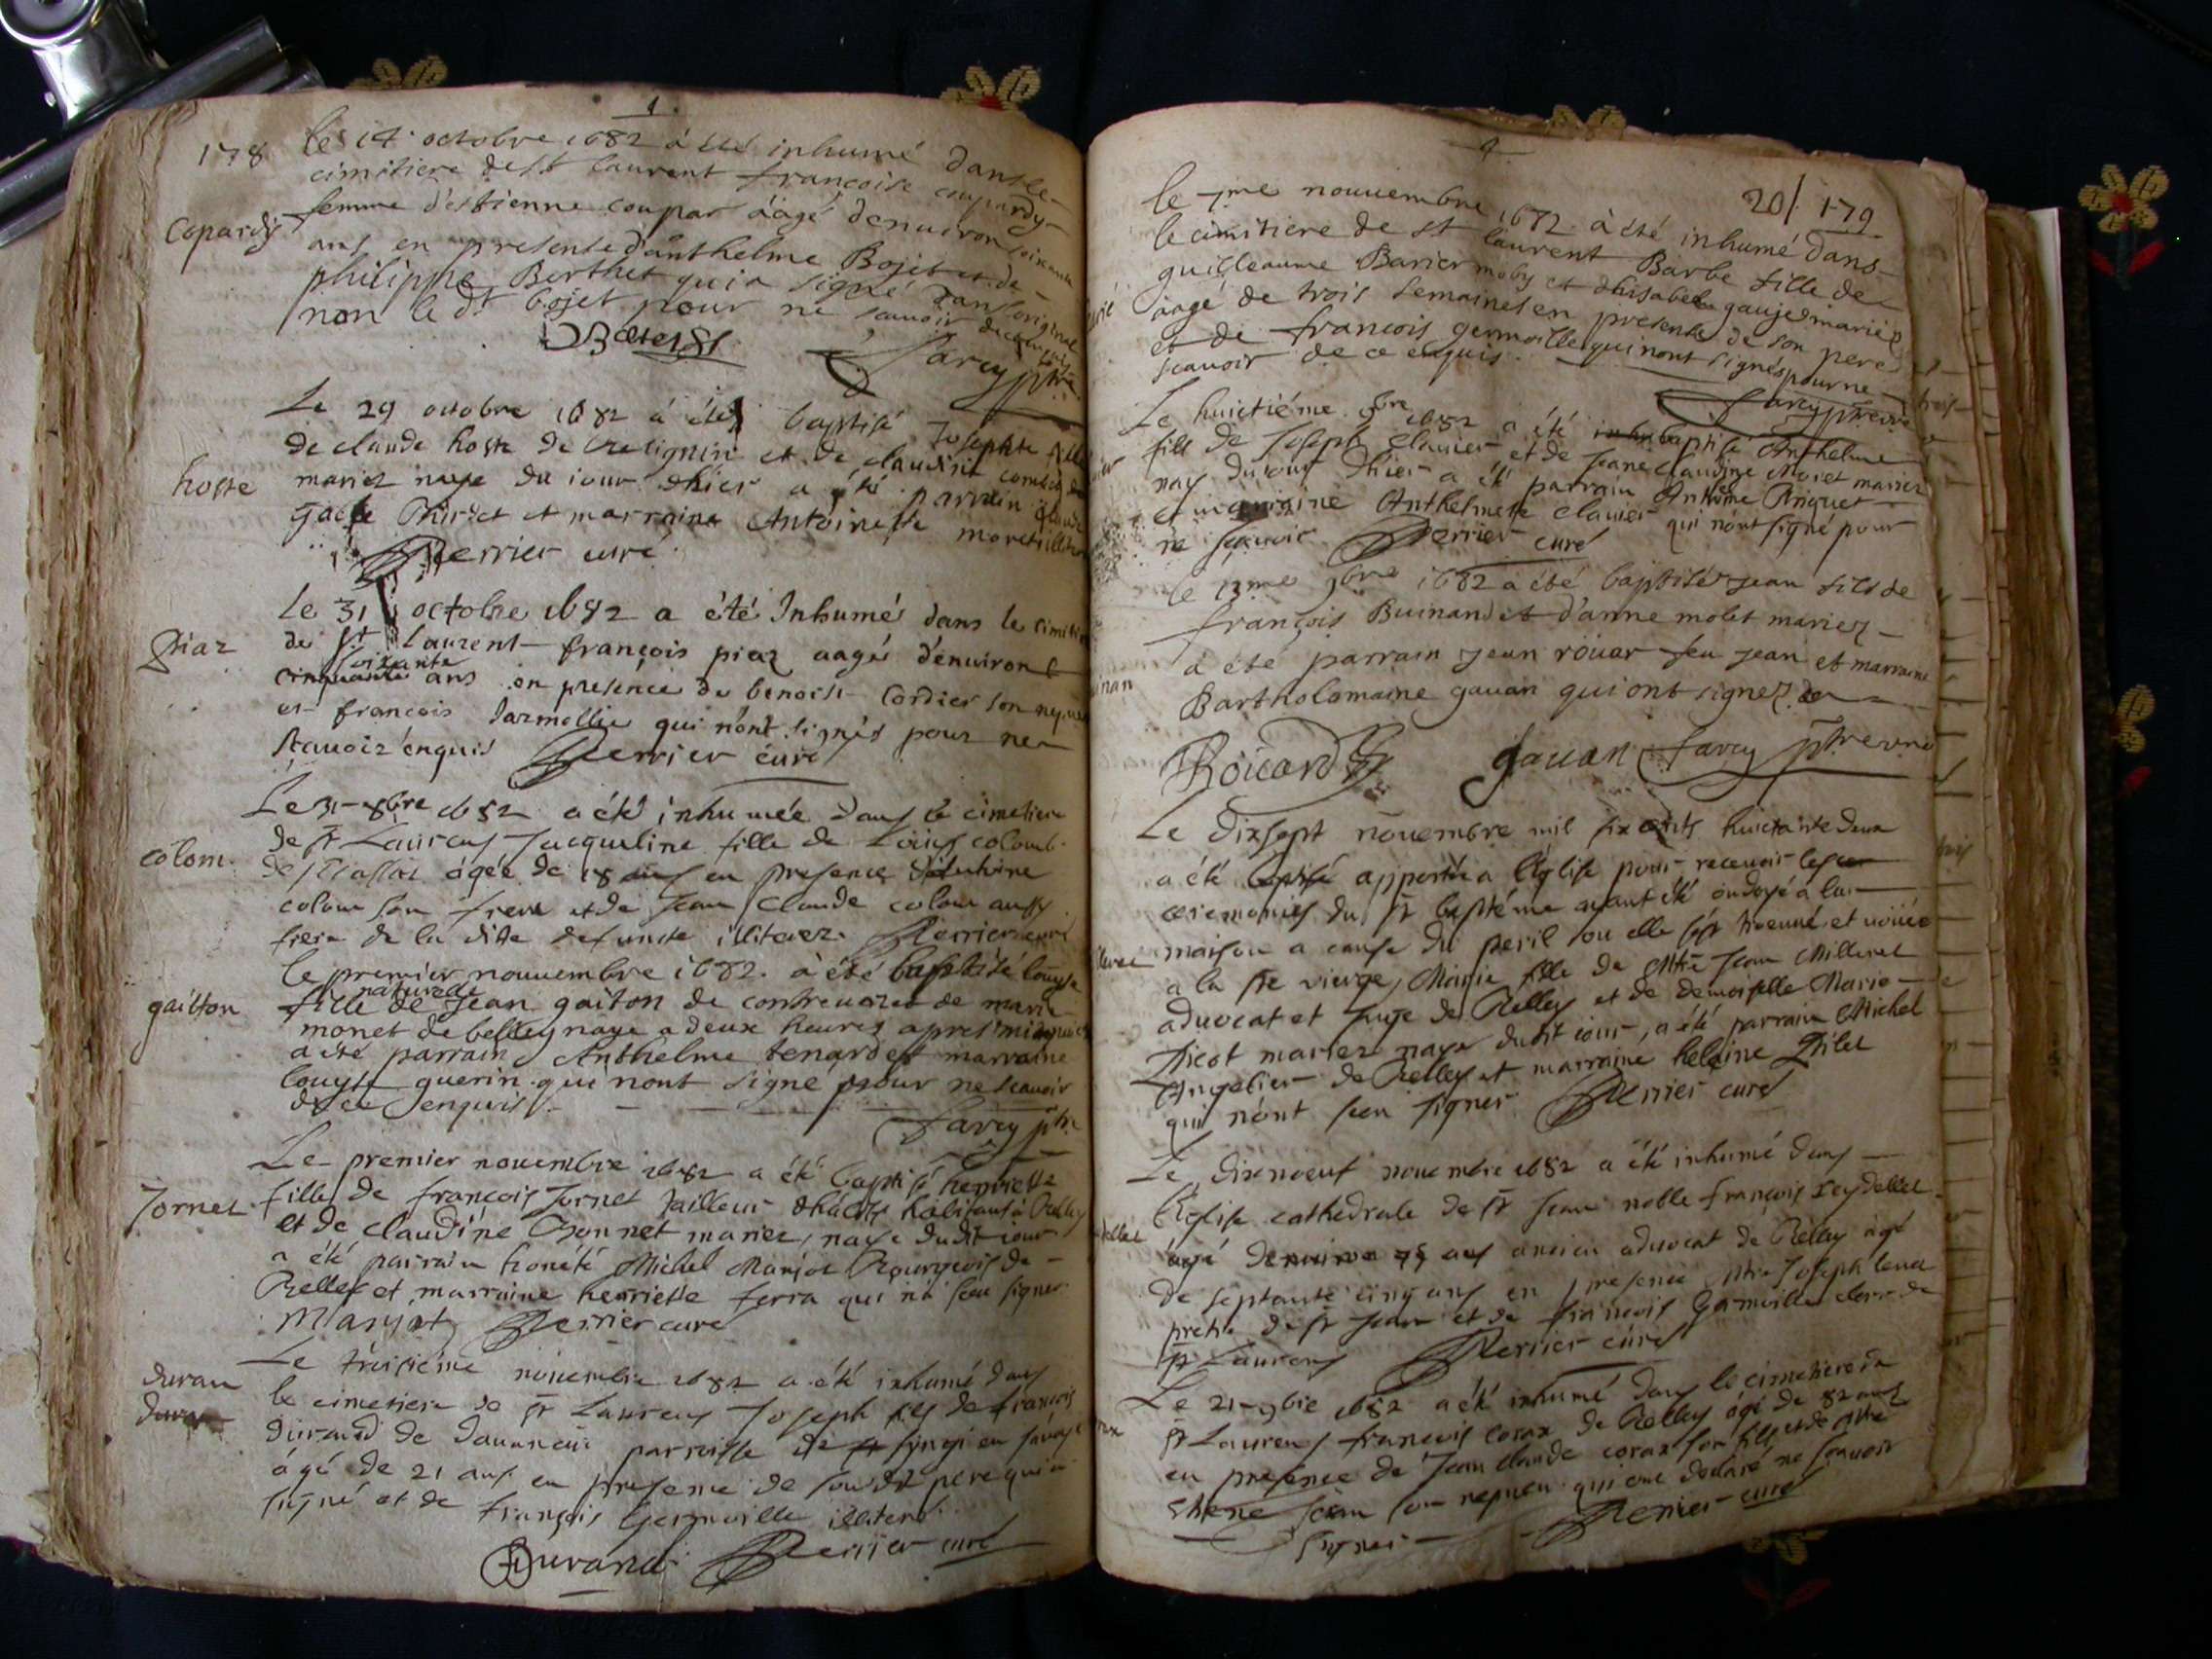 178
le 14 octobre 1682 à été inhumé dans le
cimitiere de st laurent françoise coupardy
Copardy
femme d'estienne coupar áagé denuiron soixante
ans en presente d'anthelme Bojet et de
philippe Berthet qui a signé dans loriginel
non le dt bojet pour ne scauoir de ce enquis
farcy ptre
Le 29 octobre 1682 á été baptisé Josephte fille
de claude hoste de Cresignin et de claudine
hoste
mariez naye du iour dhier a été parrain
et marraine Antoinette
Perrier curé
Le 31 octobre 1682 a été Inhumé dans le cimitie
piaz
de st Laurent françois piaz aagé d'enuiron
soixante
cinquante ans en presence de benoist Cordier son
et françois Jarmollie qui n'ont signés pour ne
scauoir enquis Perrier curé
Le 31 8bre 1682 a été inhumée dans le cimetiere
colom
de st Laurens Jacqueline fille de Loüis colomb
âgée de 18 ans en presence d'Antoine
colom son frere et de Jean Claude colom aussy
frere de la dite defuncte illiterez Perrier curé
le premier nouuembre 1682 à été baptisé louyse
naturelle
gaitton
fille de Jean gaiton de contreuoz et de marie
monet de belley naye a deux heures apres
a été parrain Anthelme tenardet marraine
louyse guerin qui nont signé pour ne scauoir
de ce enquis
farcy ptre
Le premier nouembre 1682 a été baptisé henriette
Jornet
fille de françois Jornet Tailleur dhabits habitant à Belley
et de claudine Bonnet mariez, naye dudit iour
a été parrain honête Michel Marjot Bourgeois de
Belley et marraine henriette ferra qui na sceu signer
Marjot Perrier curé
duran
Le troisiéme nouembre 1682 a été inhumé dans
le cimetiere de st Laurens Joseph fils de francois
Durand de parroisse de en sauoye
âgé de 21 ans en presence de soudt pere qui a
signé et de françois Germoille illiteré
Durand Perrier curé
20/ 179
le 7me nouuembre 1682 à été inhumé dans
le cimitiere de st laurent Barbe fille de
guilleaume Barier et dhisabele gauje mariés
áagé de trois semaines en presente de son pere
et de francois germoille qui nont signés pour ne
scauoir de ce enquis
farcy ptre
Le huictiéme 9bre 1682 a été baptisé Anthelme
fils de Joseph Clauier et de Jeane Claudine Moret mariez
nay du iour dhier a été parrain Anthelme Briquet
et marraine Anthelmete Clauier qui nont signé pour
ne scauoir Perrier curé
le 13me 9bre 1682 a été baptisé Jean fils de
françois Buinand et d'anne molet mariez
a été parrain Jean roüar feu Jean et marraine
Bartholomaine gauan qui ont signez
Roüard Gauan farcy ptre
Le dixsept nouembre mil six cents huictante deux
a été apporté a l'église pour receuoir les
ceremonies du st baptéme ayant été ondoyé a la
maison a cause du peril ou elle s'est treuuée et uoüée
a la ste vierge, Marie fille de Mtre Jean Milleret
aduocat et juge de Belley et de demoiselle Marie
Dicot mariez naye dudit iour, a été parrain Michel
Angelier de Belley et marraine helaine Pilet
qui n'ont sceu signer Perrier curé
Le dixneuf nouembre 1682 a été inhumé dans
l'église cathedrale de st Jean noble françois
âgé denuiron 75 ans ancien aduocat de Belley âgé
de septante cinq ans en presence Mtre Joseph
pretre de st Jean et de francois Germoille clerc de
st Laurens Perrier curé
Le 21 9bre 1682 a été inhumé dans le cimetiere de
st Laurens francois Corax de Belley âgé de 82 ans
en presence de Jean Claude corax son fils et de
son nepueu qui ont declaré ne scauoir
signer Perrier curé